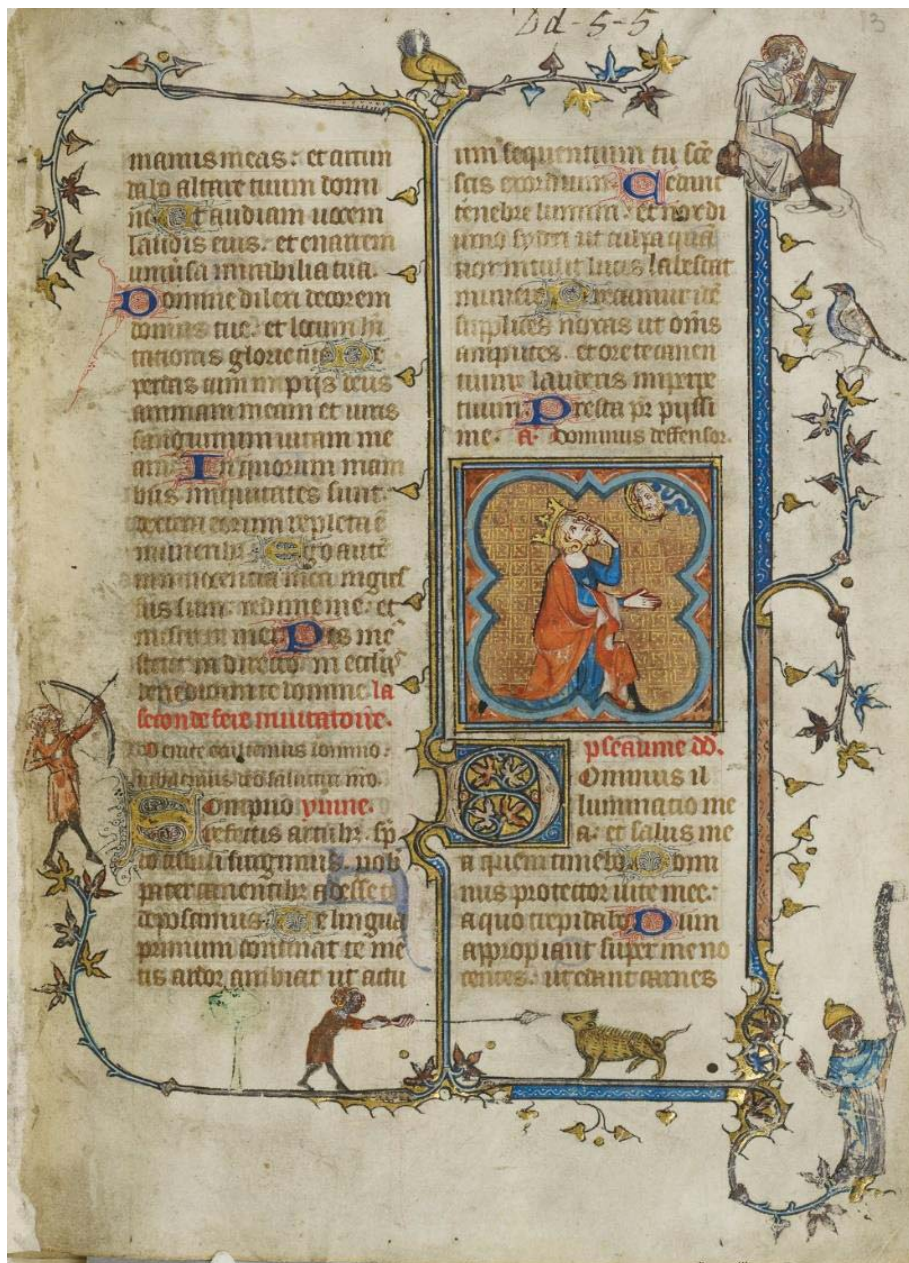 Dd-5-5
13
manus meas: et circun
dabo altare tuum domi
ne Et audiam uocem
laudis eius. et enarrem
uniuersa mirabilia tua.
Domine dilexi decorem
domus tue. et locum ha
tationis glorie tue Ne
perdas cum impijs deus
animam meam et uiris
sanguinum uitam me
am: In quorum mani
bus iniquitates sunt.
dextera eorum repleta ē
muneribꝫ Ego autē
in innocencia mea ingres
sus sum: redime me. et
miserere mei Pes me
stetit in directo in ecclījs
benedicam te domine. la
seconde ferie inuitatoire.
Venite exultemus domino.
iubilemus deo salutari nro.
Sompno ymne.
refectis artubꝫ. sp
to cubili surgimus. nob
pater canentibꝫ adesse te
deposcimus. Te lingua
primum concinat te me
tis ardor ambiat ut actu
um sequentium tu scē
sis exordium. Cedant
tenebre lumini. et nox di
urno syderi ut culpa quā
nox intulit lucis labescat
munere Precamur idē
supplices noxas ut om̄s
amputes. et ore te canen
tium lauderis imperpe
tuum. Presta pr̄ pijssi
me. a. Dominus deffensor.
pseaume dd.
Dominus il
luminatio me
a. et salus me
a quem timebo Domi
nus protector uite mee:
a quo trepidabo Dum
appropiant super me no
centes: ut edant carnes